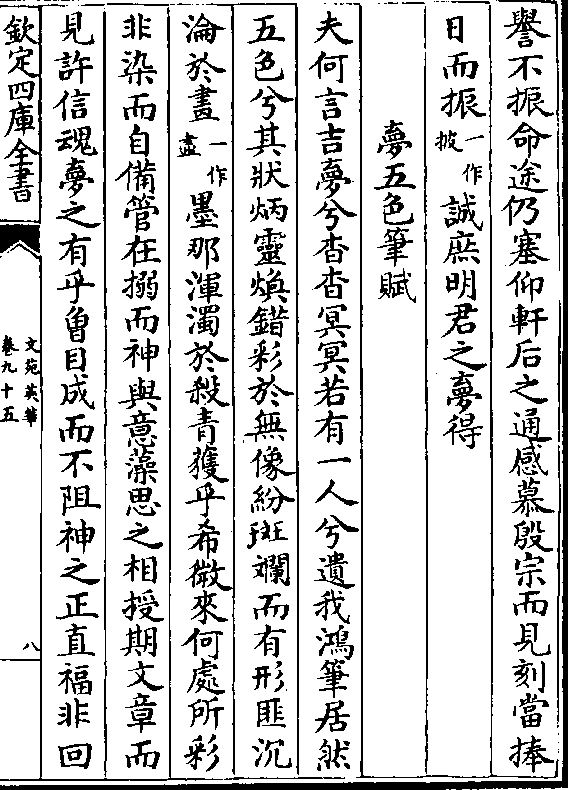 譽不振命途仍塞仰軒后之通感慕殷宗而見刻當捧
日而振一作披誠庶明君之夢得
夢五色筆賦
夫何言吉夢兮杳杳冥冥若有一人兮遺我鴻筆居然
五色兮其狀炳靈煥錯彩於無像紛斑斕而有形匪沉
淪於畫一作盡墨那渾濁於殺青獲乎希微來何處所彩
非染而自備管在搦而神與意藻思之相授期文章而
見許信魂夢之有乎曾目成而不阻神之正直福非回
欽定四庫全書
文苑英華
卷九十五
八